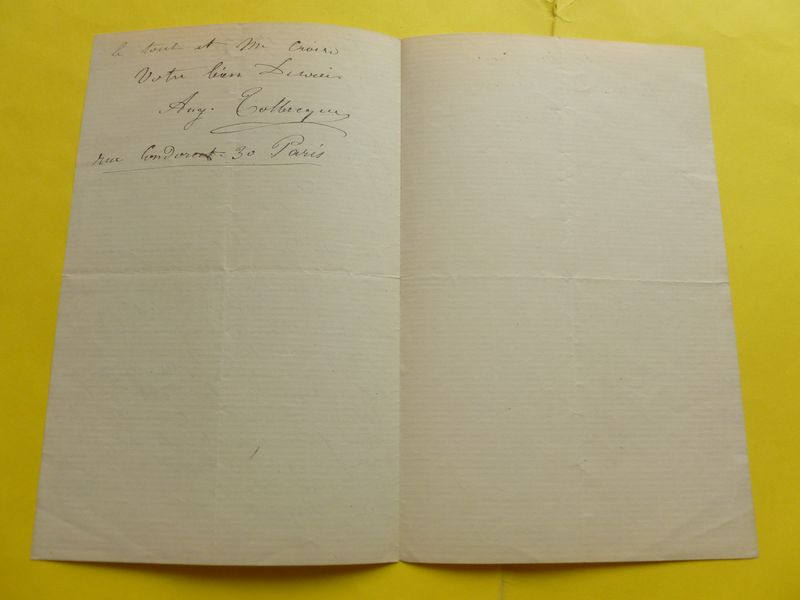 le tout et me croire
Votre bien Dévoué
Aug. Tolbecque
rue Condorcet = 30 Paris